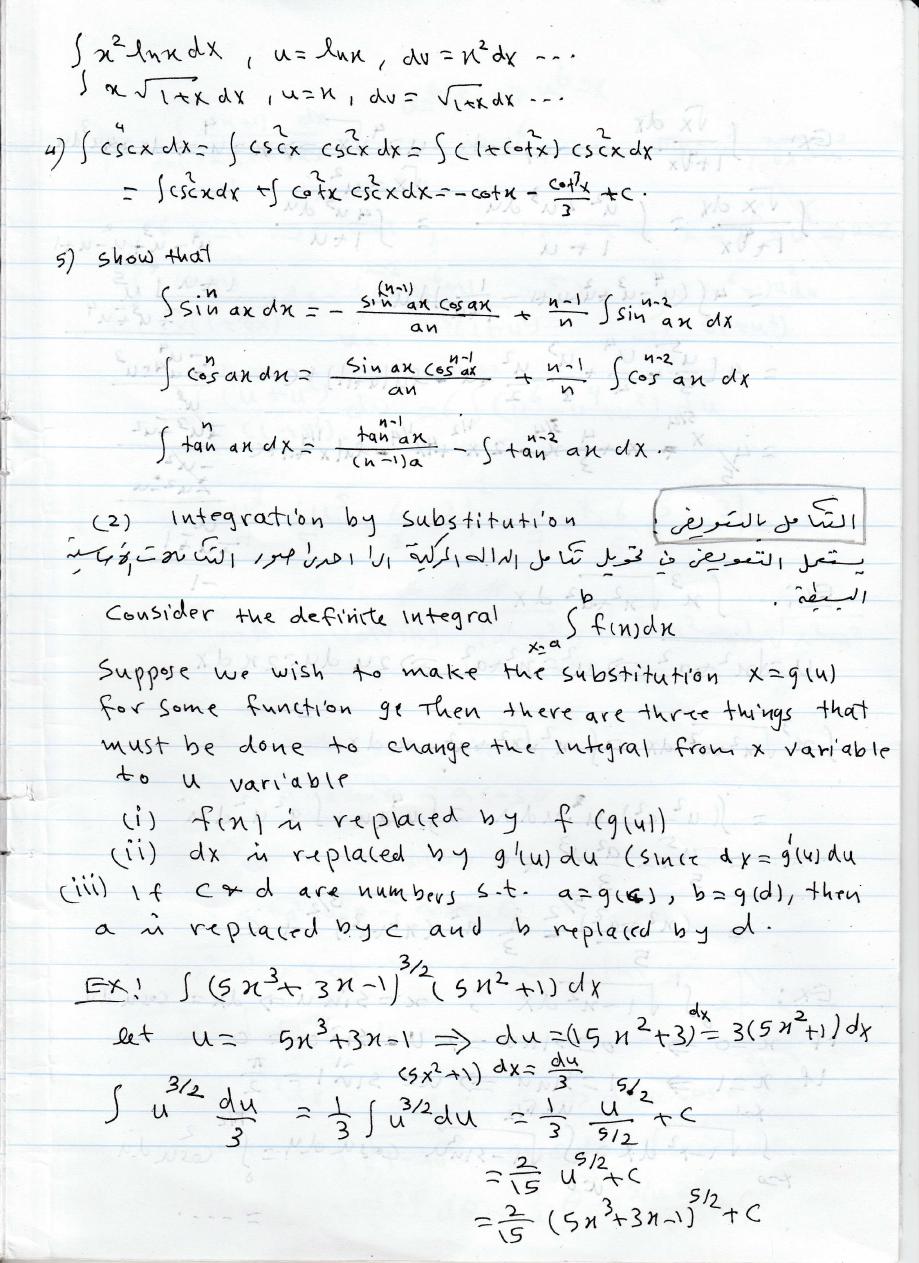 ∫ x² lnx dx , u = lnx , dv = x² dx ...
∫ x √(1+x) dx , u = x , dv = √(1+x) dx ...
4) ∫ csc⁴x dx = ∫ csc²x csc²x dx = ∫ (1+cot²x) csc²x dx
= ∫ csc²x dx + ∫ cot²x csc²x dx = -cotx - cot³x/3 + c .
5) show that
∫ sinⁿ ax dx = - sin⁽ⁿ⁻¹⁾ ax cos ax / an + n-1/n ∫ sinⁿ⁻² ax dx
∫ cosⁿ ax dx = sin ax cosⁿ⁻¹ ax / an + n-1/n ∫ cosⁿ⁻² ax dx
∫ tanⁿ ax dx = tanⁿ⁻¹ ax / (n-1)a - ∫ tanⁿ⁻² ax dx .
(2) Integration by Substitution التكامل بالتعويض
يستعمل التعويض في تحويل تكامل الداله المركبة الى احدى صور التكاملات الأساسية
البسيطة .
Consider the definite integral ∫ₓ₌ₐᵇ f(x)dx
Suppose we wish to make the substitution x = g(u)
for some function g. Then there are three things that
must be done to change the integral from x variable
to u variable
(i) f(x) is replaced by f (g(u))
(ii) dx is replaced by g'(u) du (since dx = g'(u) du
(iii) If c & d are numbers s.t. a = g(c), b = g(d), then
a is replaced by c and b replaced by d .
EX! ∫ (5x³ + 3x - 1)^3/2 (5x² + 1) dx
let u = 5x³ + 3x - 1 ⇒ du = (15x² + 3) dx = 3(5x² + 1) dx
(5x² + 1) dx = du/3
∫ u^3/2 du/3 = 1/3 ∫ u^3/2 du = 1/3 u^5/2 / 5/2 + c
= 2/15 u^5/2 + c
= 2/15 (5x³ + 3x - 1)^5/2 + c